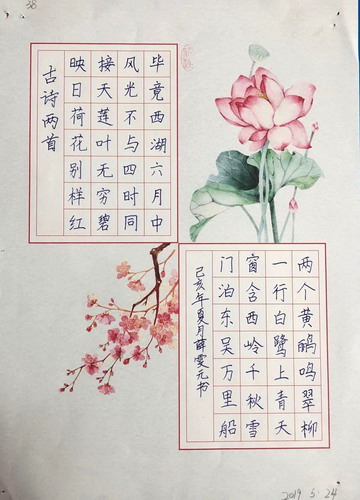 38
古诗两首
毕竟西湖六月中
风光不与四时同
接天莲叶无穷碧
映日荷花别样红
两个黄鹂鸣翠柳
一行白鹭上青天
窗含西岭千秋雪
门泊东吴万里船
己亥年夏月薛雯元书
2019 5. 24